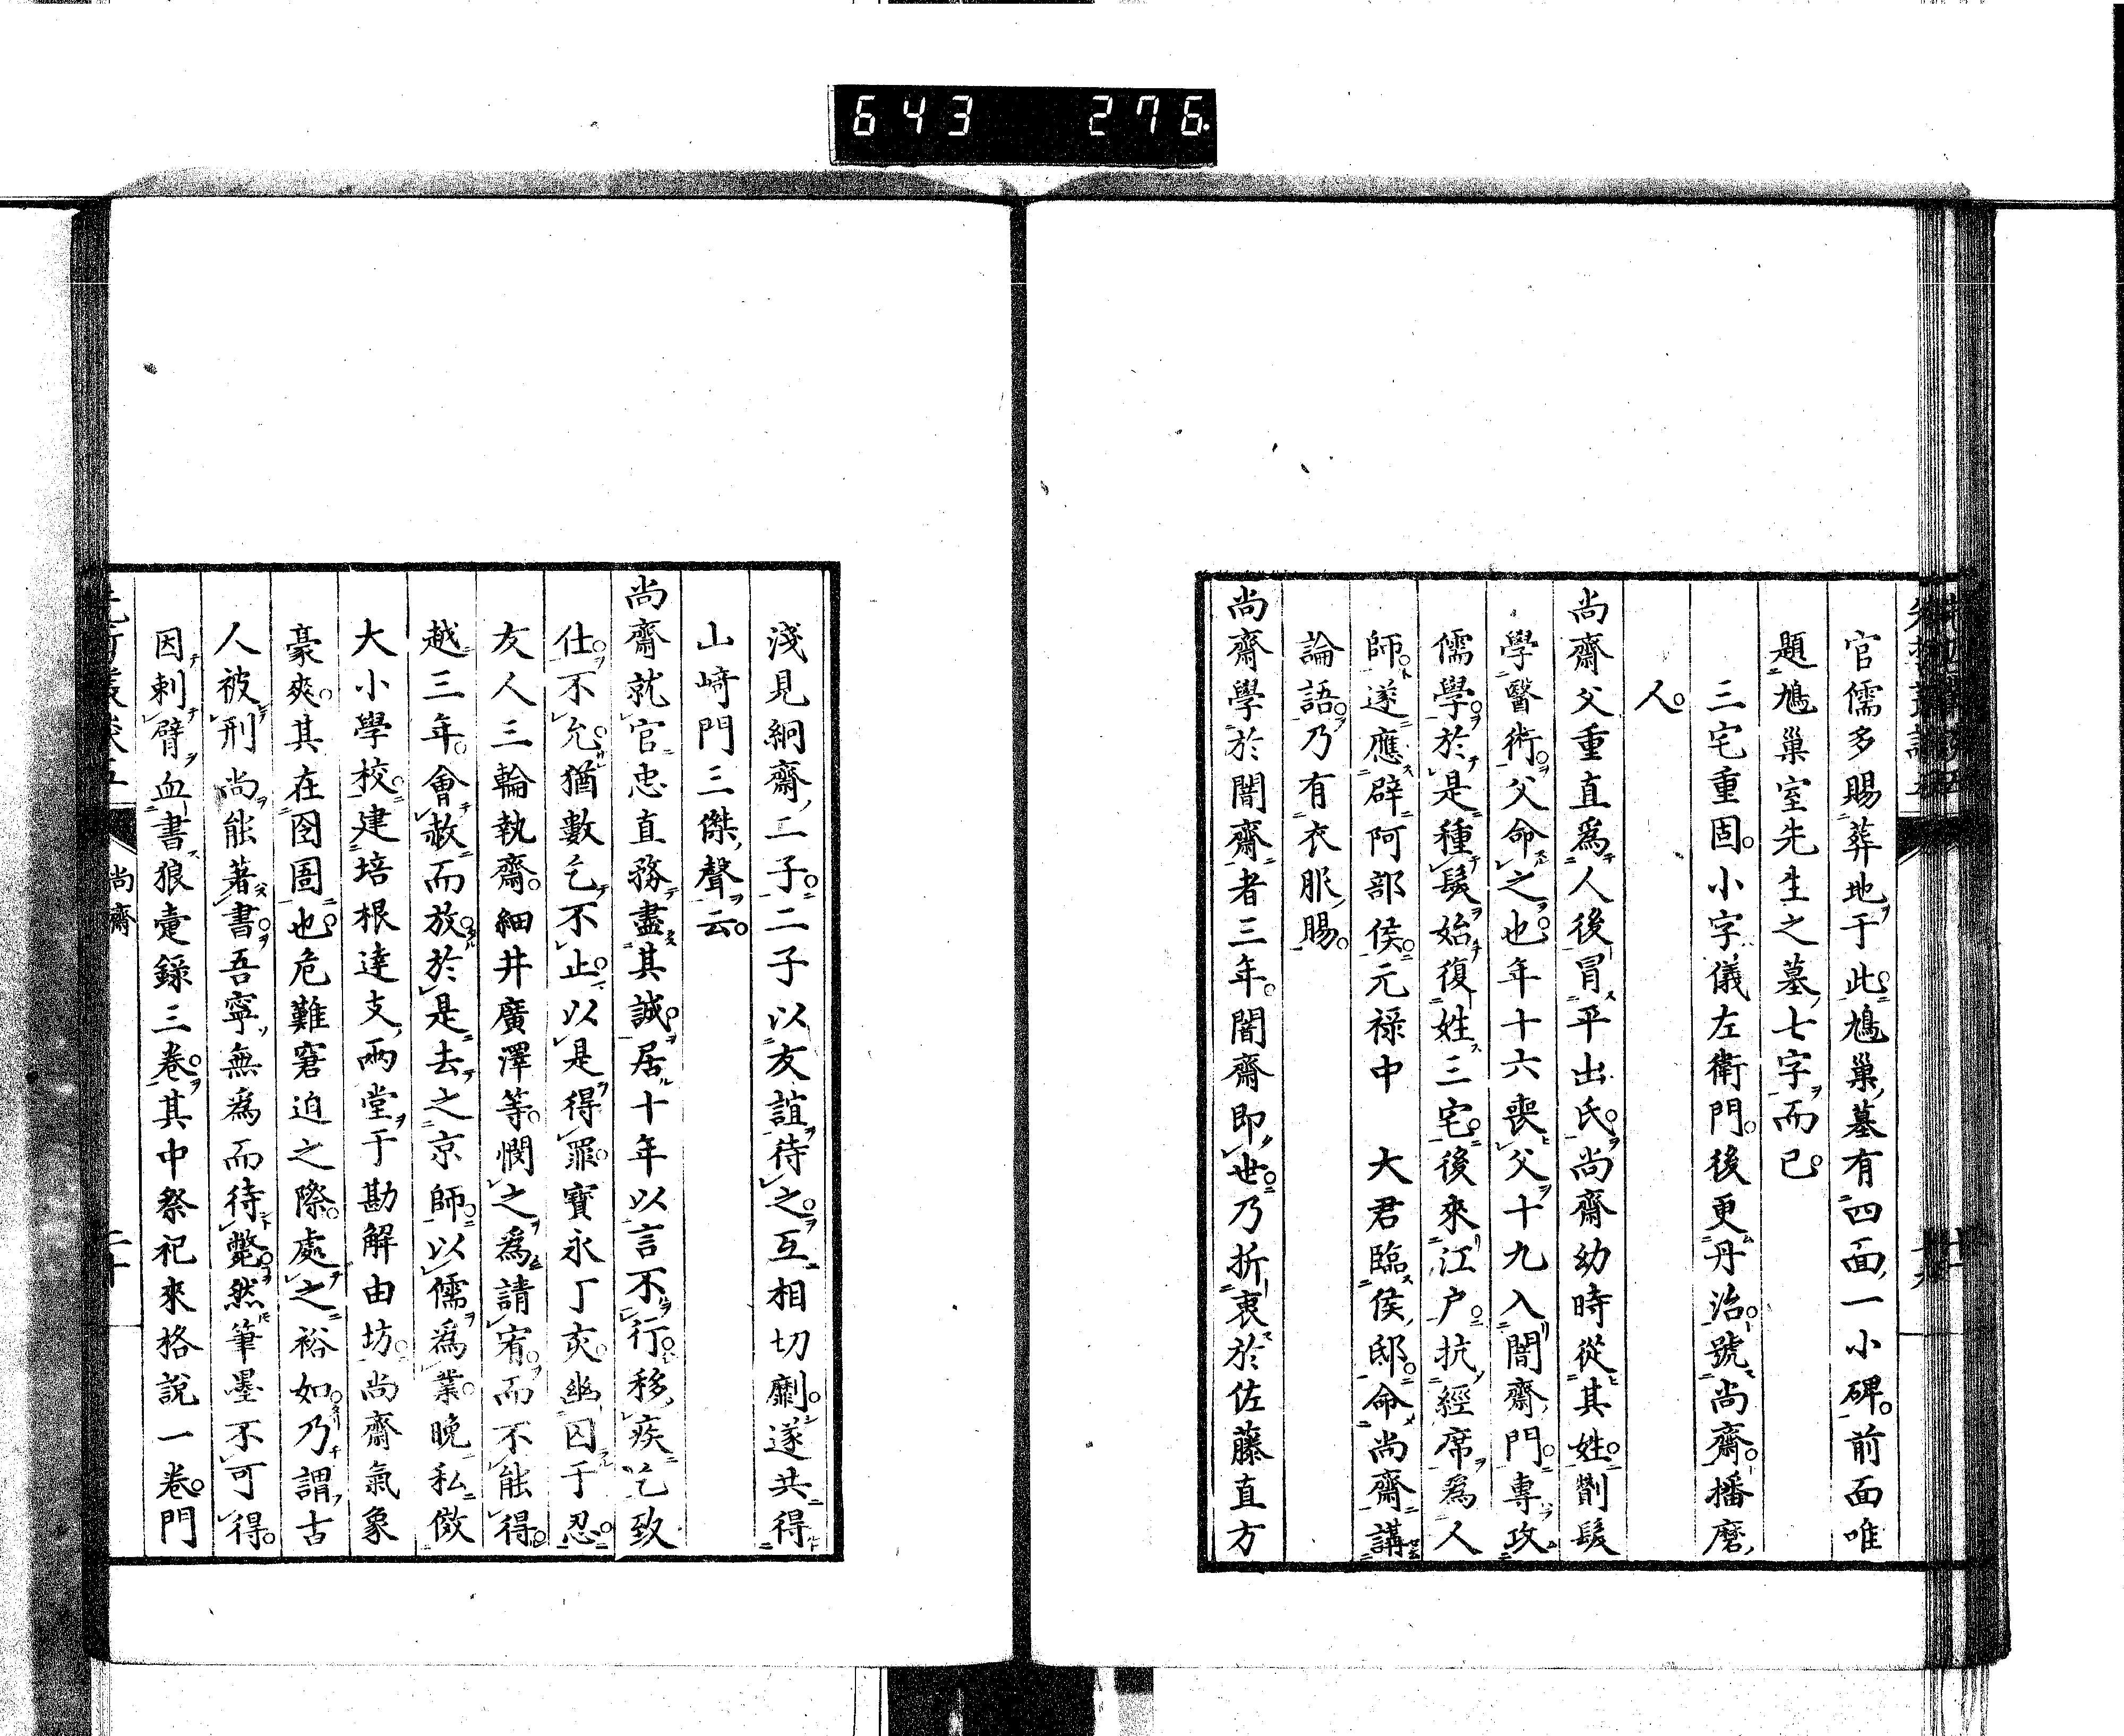 643 276
官儒多賜葬地于此鳩巢墓有四面一小碑前面唯
題鳩巢室先生之墓七字而已
三宅重固小字儀左衛門後更丹治號尚齋播磨
人
尚齋父重直爲人後冒平出氏尚齋幼時從其姓剃髮
學醫術父命之也年十六喪父十九入闇齋門專攻
儒學於是種髮始復姓三宅後來江戶抗經席爲人
師遂應辟阿部侯元祿中　大君臨侯邸命尚齋講
論語乃有衣服賜
尚齋學於闇齋者三年闇齋即世乃折衷於佐藤直方
淺見絅齋二子二子以友誼待之互相切劘遂共得
山﨑門三傑聲云
尚齋就官忠直務盡其誠居十年以言不行移疾乞致
仕不允猶數乞不止以是得罪寶永丁亥幽囚于忍
友人三輪執齋細井廣澤等憫之爲請宥而不能得
越三年會赦而放於是去之京師以儒爲業晚私倣
大小學校建培根達支兩堂于勘解由坊尚齋氣象
豪爽其在囹圄也危難窘迫之際處之裕如乃謂古
人被刑尚能著書吾寧無爲而待斃然筆墨不可得
因刺臂血書狼疐錄三卷其中祭祀來格說一卷門
尚齋